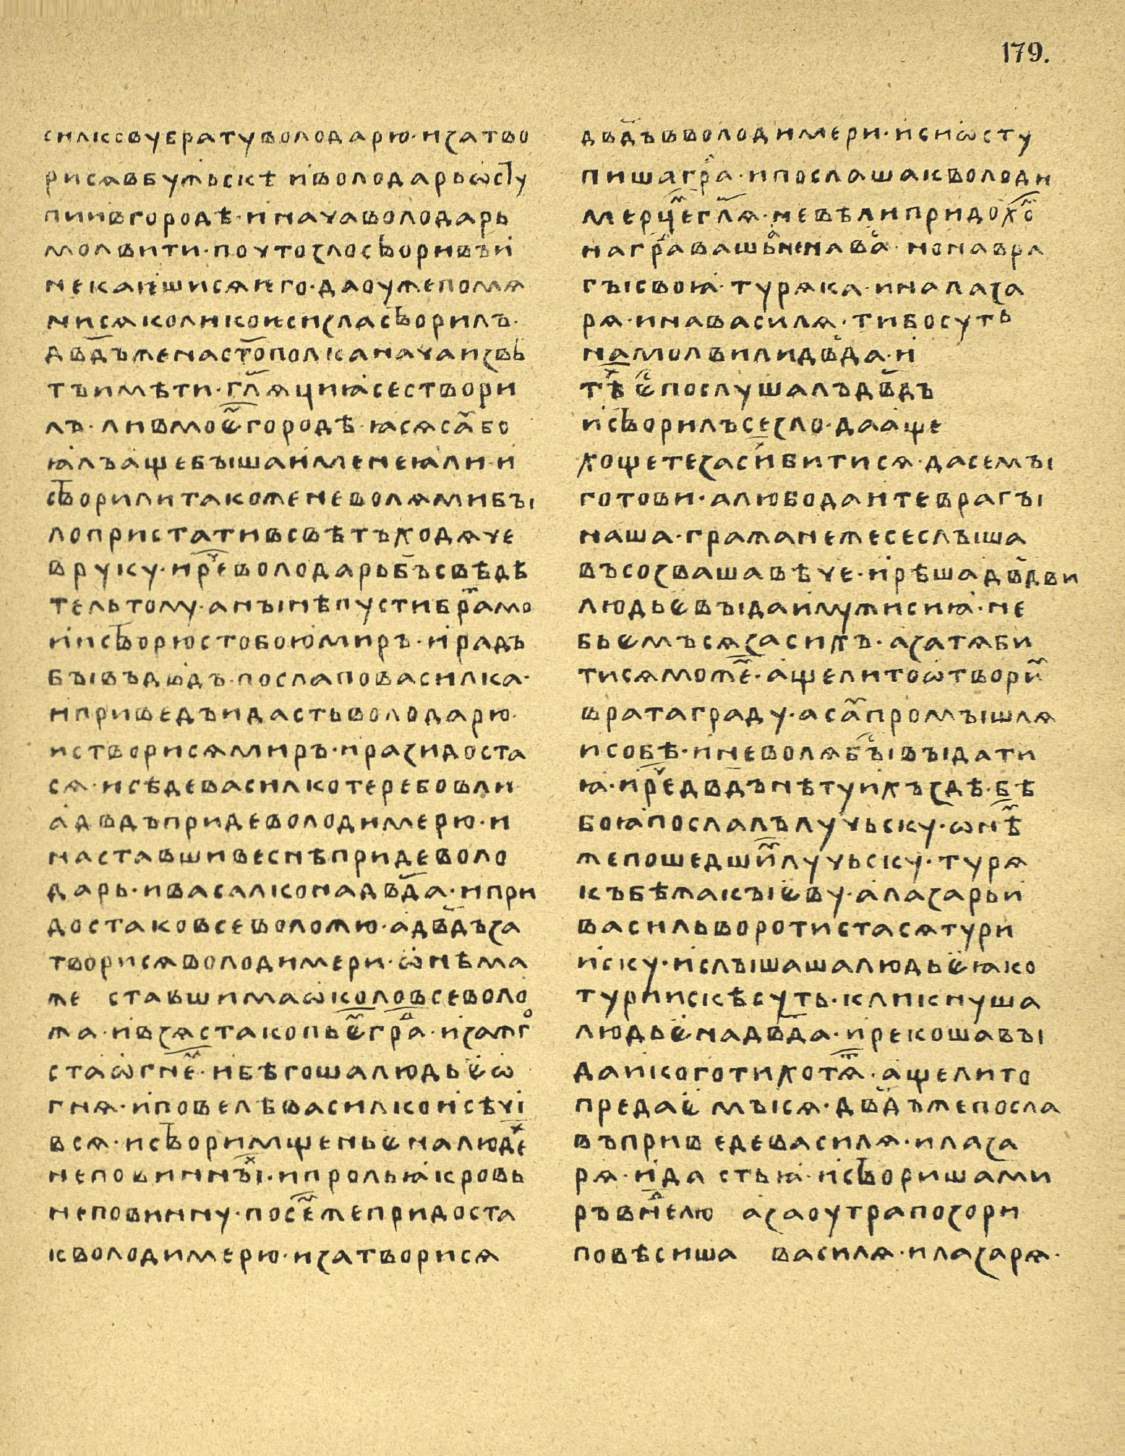 179.
силковубратуволодарю·изатво
рисявбужьскѣ ивολодарьѡсту
пиивгородѣ·иначаволодарь
молвити·почтозлосъворивъи
некаишисяего·даоужепомя
нисяколикоисизласъворилъ·
двд҃ъженаст҃ополканачаизвѣ
тъимѣти·гл҃яциꙗсествори
лъ·ливмоеⷨ҇городѣ·ꙗсясаⷨбо
ꙗлъащебышаименеꙗли·и
сътворилитакоженеволямибы
лопристативсвѣтъходяче
вруку·иреⷱ҇володарьбъ҃свѣдѣ
тельтому·анынѣпустибраⷮ҇мо
иисъворюстобоюмиръ·ирадъ
бывъдв҃дъ·послаповасилка·
иприведъидастьволодарю·
иствориясмиръ·иразидоста
ся·исѣдевасилкотеребовли·
адв҃дъпридеволодимерю·и
наставшивеснѣпридеволо
дарь·ивасалконадвд҃а·ипри
достаковсеволожю·адвд҃ъза
творисяволодимери·ѡнѣма
же ставшимаѡколовсеволо
жа·ивзястакопьеⷨ҇граⷣ·изажго
стаѡгнеⷨ·ибѣгошалюдьеѡ
гня·иповелѣвасилкоисѣчи
вся·исъворимщеньеналюдеⷯ
неповинныⷯ·ипрольꙗкровь
неповинну·посеⷨ҇жепридоста
кволодимерю·изатворися
двд҃ъвволодимери·исиѡсту
пишаграⷣ·ипослашакволоди
мерцеⷨ҇гл҃я·невѣлипридохоⷨ҇
награⷣвашьнинаваⷭ·нонавра
гысвоꙗ·туряка·иналаза
ря·инавасиля·тибосуть
намолвилидвд҃а·и
тѣⷯ҇еⷭпослушалъдвд҃ъ
исъворилъсезло·дааще
хощетезасибитися·дасемы
готови·алюбодаитеврагы
наша·гражанежесеслыша
въсозвашавѣче·ирѣшадвд҃ви
людьевыдаимужисиꙗ·не
бьемъсязасихъ·азатяби
тисяможеⷨ҇·ащелитоѡтвориⷨ
вратаграду·асаⷨпромышля
исобѣ·иневолябыⷭ҇выдати
ꙗ·иреⷱдвд҃ънѣтуихъздѣ·бѣ
боꙗпослалълучьску·ѡнѣⷨ҇
жепошедшиⷨ҇лучьску·туря
къбѣжакыеву·алазарьи
васильворотистасятури
иску·ислышашалюдьеꙗко
туриискѣсуть·кликнуша
людьенадвд҃а·ирекошавы
даикоготихотяⷮ҇·ащелито
предае мыся·двд҃ъжепосла
въприв едевасиля·илаза
ря·ида стьꙗ·исъворишами
ръвнⷣелю азаоутрапозори
повѣсиша василя·илазаря·